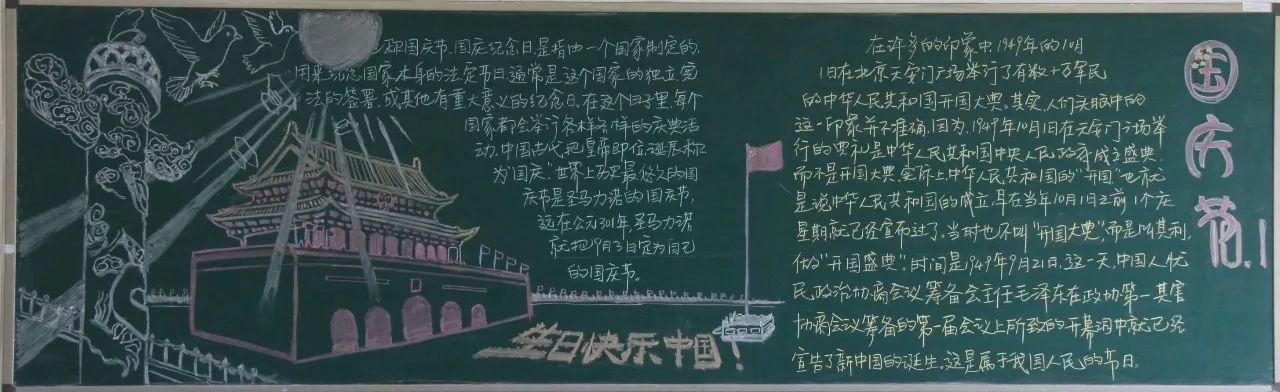 又称国庆节。国庆纪念日是指由一个国家制定的,
用来纪念国家本身的法定节日,通常是这个国家的独立宪
法的签署。或其他有重大意义的纪念日。在这个日子里,每个
国家都会举行各样各样的庆典活
动。中国古代把皇帝即位诞辰称
为“国庆”。世界上历史最悠久的国
庆节是圣马力诺的国庆节,
远在公元301年,圣马力诺
就把9月3日定为自己
的国庆节。
生日快乐中国!
在许多的印象中,1949年的10月
1日在北京天安门广场举行了有数十万军民
的中华人民共和国开国大典。其实,人们头脑中的
这一印象并不准确。因为,1949年10月1日在天安门广场举
行的典礼是中华人民共和国中央人民政府成立盛典.
而不是开国大典。实际上中华人民共和国的“开国”也就
是说中华人民共和国的成立,早在当年10月1日之前1个
星期就已经宣布过了。当时也不叫“开国大典”,而是叫
做“开国盛典”。时间是1949年9月21日,这一天,中国人
民政治协商会议筹备会主任毛泽东在政协第一
协商会议筹备的第一届会议上所致的开幕词中就已经
宣告了新中国的诞生。这是属于我国人民的节日。
国庆节10.1